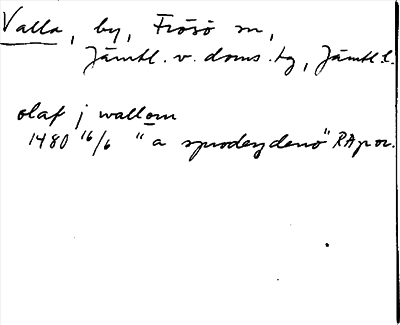 Valla, by, Frösö sn,
Jämtl. v. doms. tg, Jämtl. l.
olaf j wallom
1480 16/6 "a sprodeydenö" RA por.